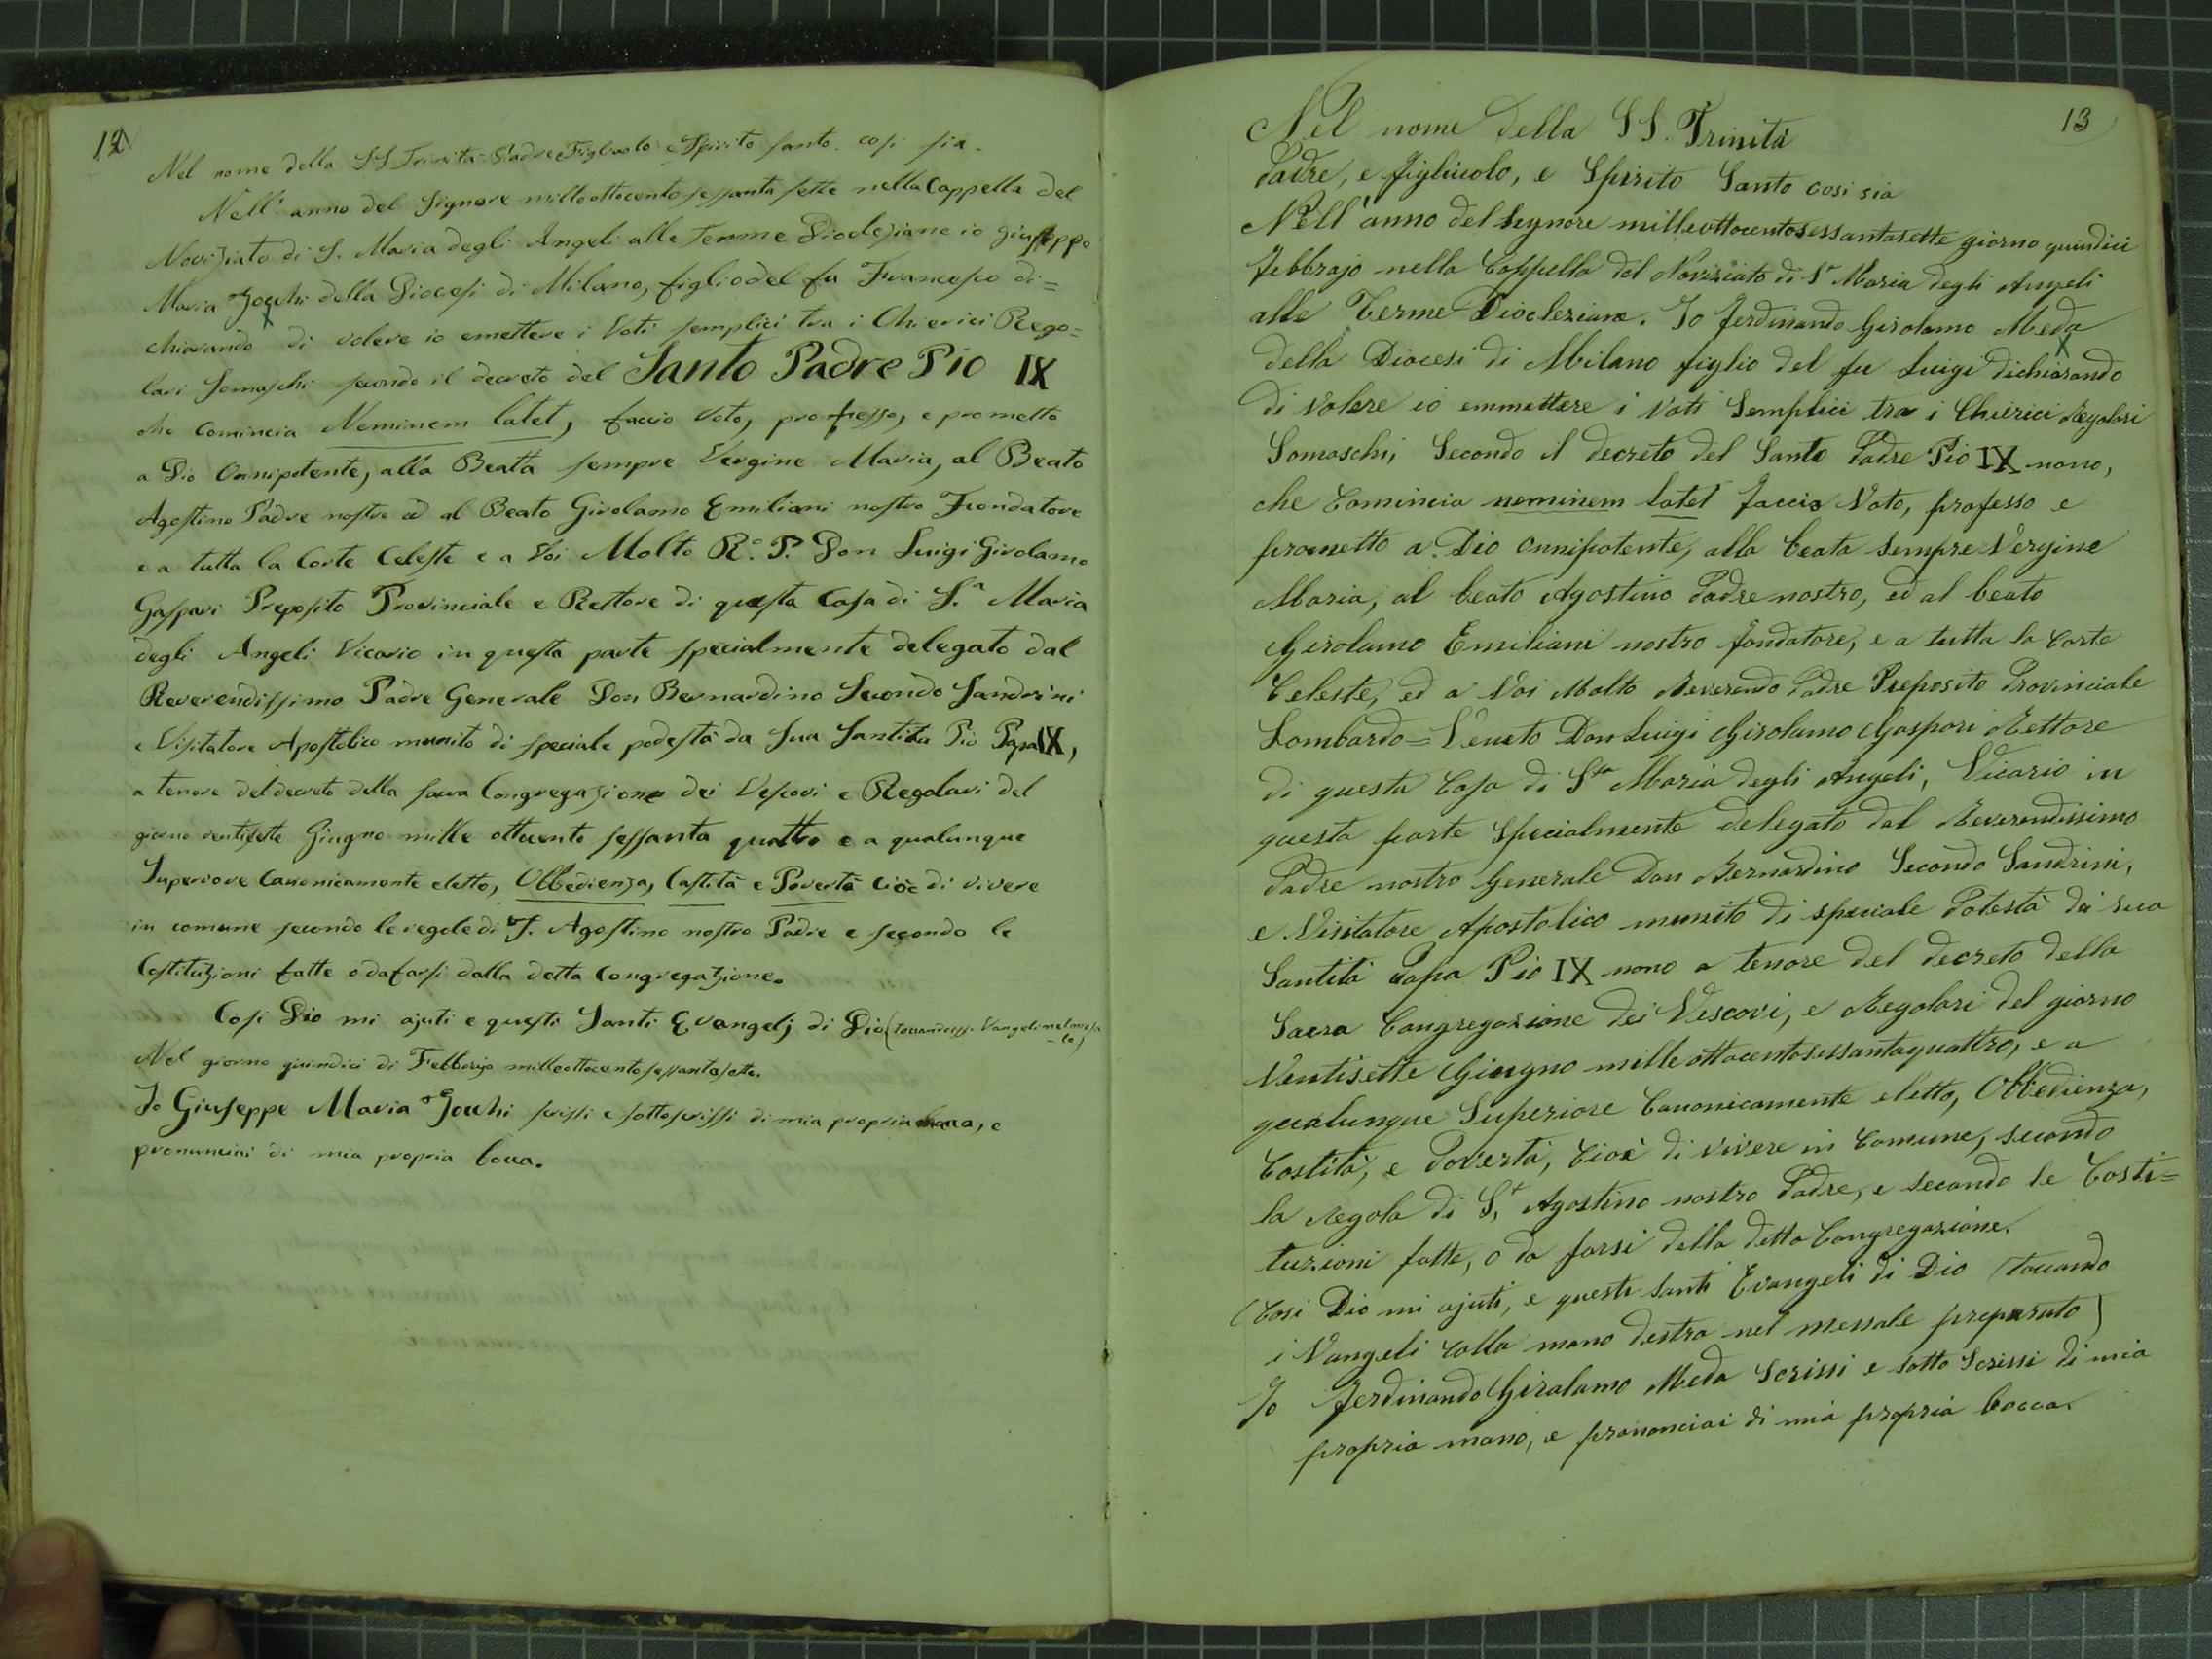 12
Nel nome della SS Trinità Padre Figliuolo e Spirito santo. cosi sia.
Nell' anno del Signore milleottocento sessanta sette nella Cappella del
Noviziato di S. Maria degli Angeli alle Terme Dioclesiane io Giuseppe
Maria Jocchi della Diocesi di Milano, figlio del fu Francesco di=
chiarando di volere io emettere i Voti semplici tra i Chierici Rego=
lari Somaschi secondo il decreto del Santo Padre Pio IX
che comincia Neminem latet, faccio Voto, professo, e prometto
a Dio Onnipotente, alla Beata sempre Vergine Maria, al Beato
Agostino Padre nostro ed al Beato Girolamo Emiliani nostro Fondatore
e a tutta la Corte Celeste e a Voi Molto R.º P. Don Luigi Girolamo
Gaspari Preposito Provinciale e Rettore di questa Casa di S.a Maria
degli Angeli Vicario in questa parte specialmente delegato dal
Reverendissimo Padre Generale Don Bernardino Secondo Sandrini
e Visitatore Apostolico munito di speciale podestà da Sua Santità Pio Papa IX,
a tenore del decreto della sacra Congregazione dei Vescovi e Regolari del
giorno ventisette Giugno mille ottocento sessanta quattro e a qualunque
Superiore Canonicamente eletto, Obbedienza, Castità e Povertà cioè di vivere
in comune secondo le regole di S. Agostino nostro Padre e secondo le
Costituzioni fatte o da farsi dalla detta Congregazione.
Cosi Dio mi ajuti e questi Santi Evangelj di Dio (toccando i Vangeli nel messa
-le)
Nel giorno quindici di Febbrajo milleottocentosessantasette.
Io Giuseppe Maria Jocchi scrissi e sottoscrissi di mia propria mano, e
pronunciai di mia propria bocca.
13
Nel nome della SS. Trinità
Padre, e figliuolo, e Spirito Santo così sia
Nell'anno del Signore milleottocentosessantasette giorno quindici
febbrajo nella Cappella del Noviziato di Sa Maria degli Angeli
alle Terme Diocleziane. Io Ferdinando Girolamo Meda
della Diocesi di Milano figlio del fu Luigi dichiarando
di volere io emmettere i voti Semplici tra i Chierici Regolari
Somaschi, Secondo il decreto del Santo Padre Pio IX nono,
che Comincia neminem latet faccio Voto, professo e
prometto a Dio Onnipotente, alla beata sempre Vergine
Maria, al beato Agostino Padre nostro, ed al beato
Girolamo Emiliani nostro fondatore, e a tutta la Corte
Celeste, ed a Voi Molto Reverendo Padre Preposito Provinciale
Lombardo=Veneto Don Luigi Girolamo Gaspari Rettore
di questa Casa di Sta Maria degli Angeli, Vicario in
questa parte Specialmente delegato dal Reverendissimo
Padre nostro Generale Don Bernardino Secondo Sandrini,
e Visitatore Apostolico munito di speciale Potestà da sua
Santità Papa Pio IX nono a tenore del decreto della
Sacra Congregazione dei Vescovi, e Regolari del giorno
Ventisette Giugno milleottocentosessantaquattro, e a
qualunque Superiore Canonicamente eletto, Obbedienza,
Castità, e Povertà, Cioè di vivere in Comune, secondo
la regola di St. Agostino nostro Padre, e secondo le Costi=
tuzioni fatte, o da farsi dalla detta Congregazione.
(Cosi Dio mi ajuti, e questi santi Evangeli di Dio (toccando
i Vangeli colla mano destra nel messale preparato)
Io Ferdinando Girolamo Meda Scrissi e sotto Scrissi di mia
propria mano, e prononciai di mia propria bocca.